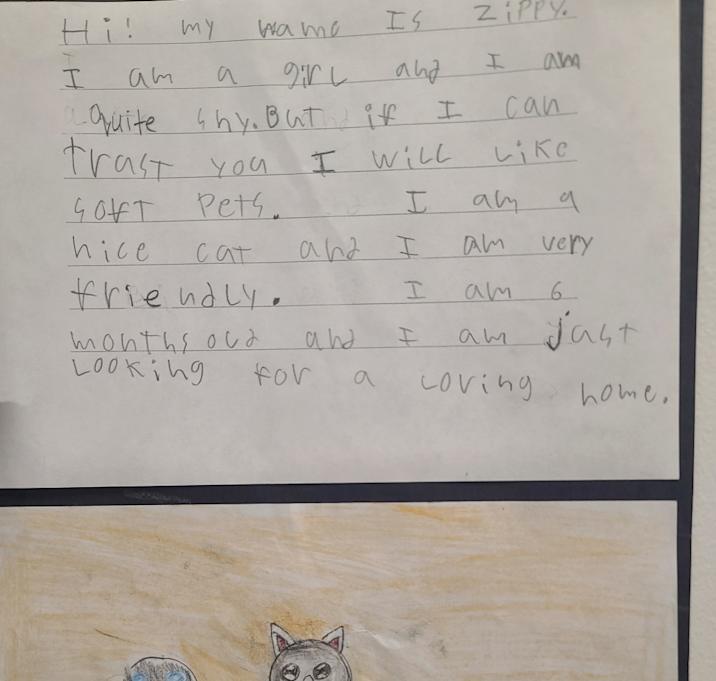 Hi! my name Is Zippy.
I am a girl and I am
quite shy. But if I can
trust you I will like
soft pets. I am a
nice cat and I am very
friendly. I am 6
months old and I am just
Looking for a loving home.